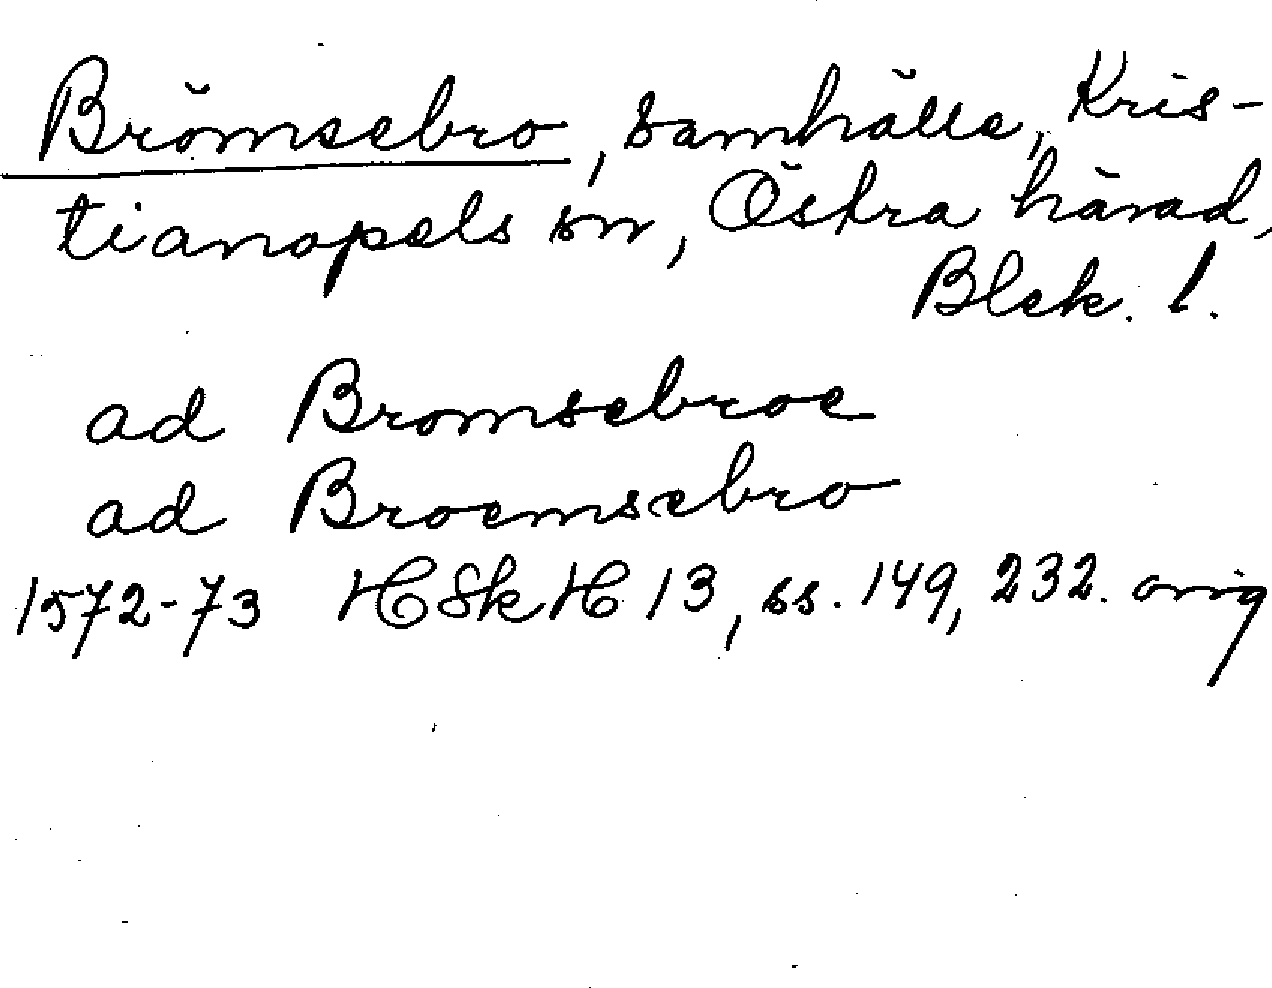 Brömsebro, samhälle, Kris-
tianopels sn, Östra härad,
Blek. l.
ad Bromsebroe
ad Broemsebro
1572-73 HSkH 13, ss. 149, 232. orig